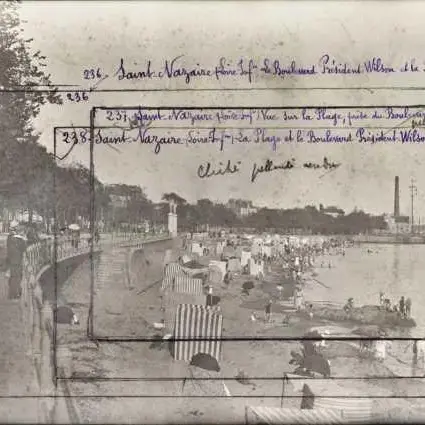 236. Saint-Nazaire (Loire Infre) Le Boulevard Président Wilson et la
236
237. Saint-Nazaire (Loire Infre) Vue sur la Plage, prise du Boulevard
238. Saint-Nazaire (Loire Infre) La Plage et le Boulevard Président Wilson
Cliché